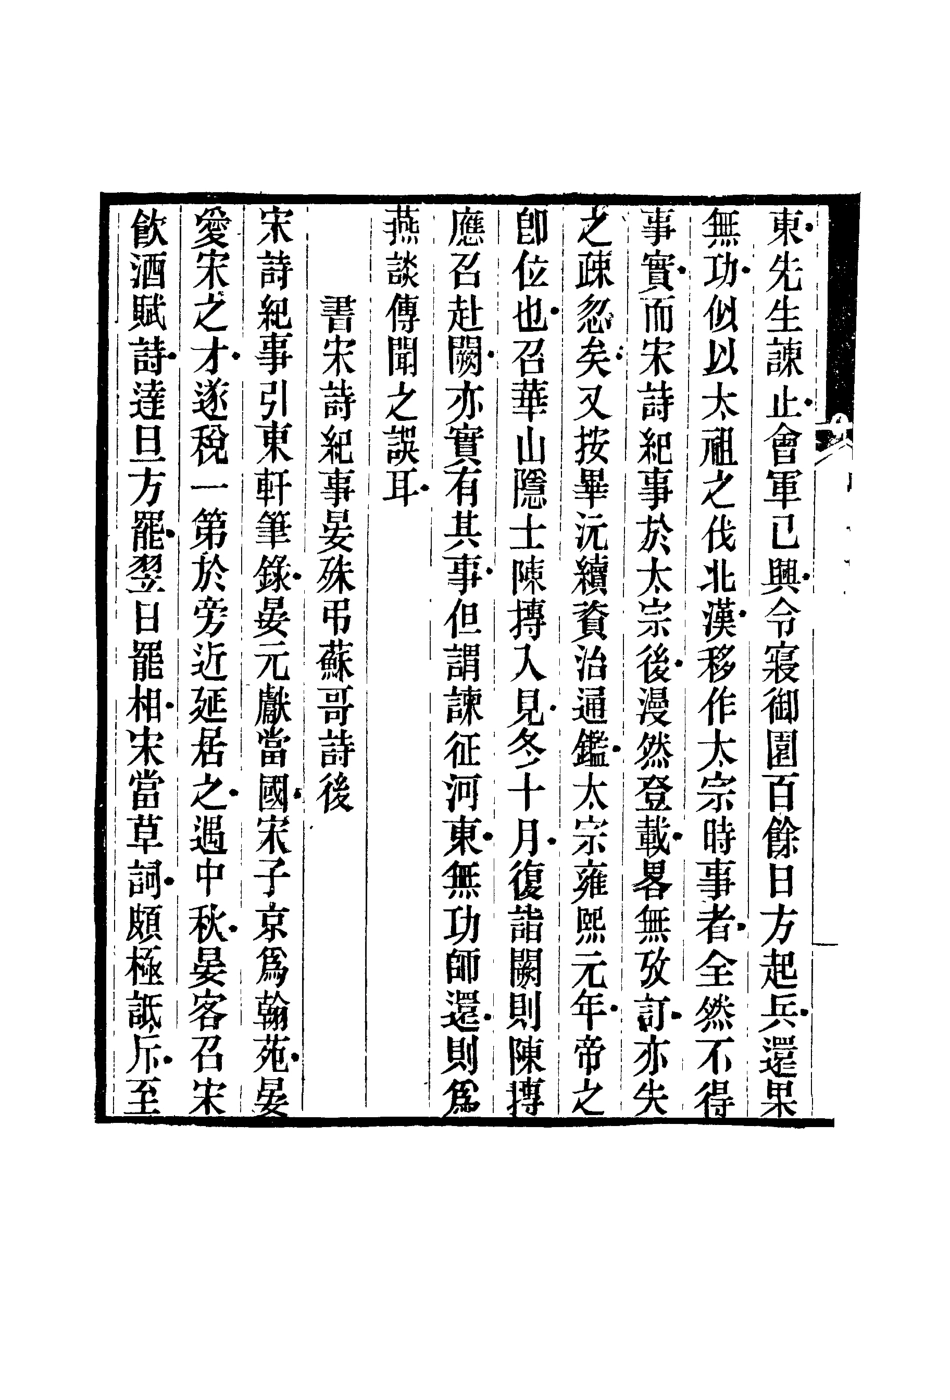 東先生諫止會軍已興令寢御園百餘日方起兵還果
無功似以太祖之伐北漢移作太宗時事者全然不得
事實而宋詩紀事於太宗後漫然登載畧無攷訂亦失
之疎忽矣又按畢沅續資治通鑑太宗雍熙元年帝之
卽位也召華山隱士陳摶入見冬十月復詣闕則陳摶
應召赴闕亦實有其事但謂諫征河東無功師還則爲
燕談傳聞之誤耳
書宋詩紀事晏殊弔蘇哥詩後
宋詩紀事引東軒筆錄晏元獻當國宋子京爲翰苑晏
愛宋之才遂稅一第於旁近延居之遇中秋晏客召宋
飮酒賦詩達旦方罷翌日罷相宋當草詞頗極詆斥至